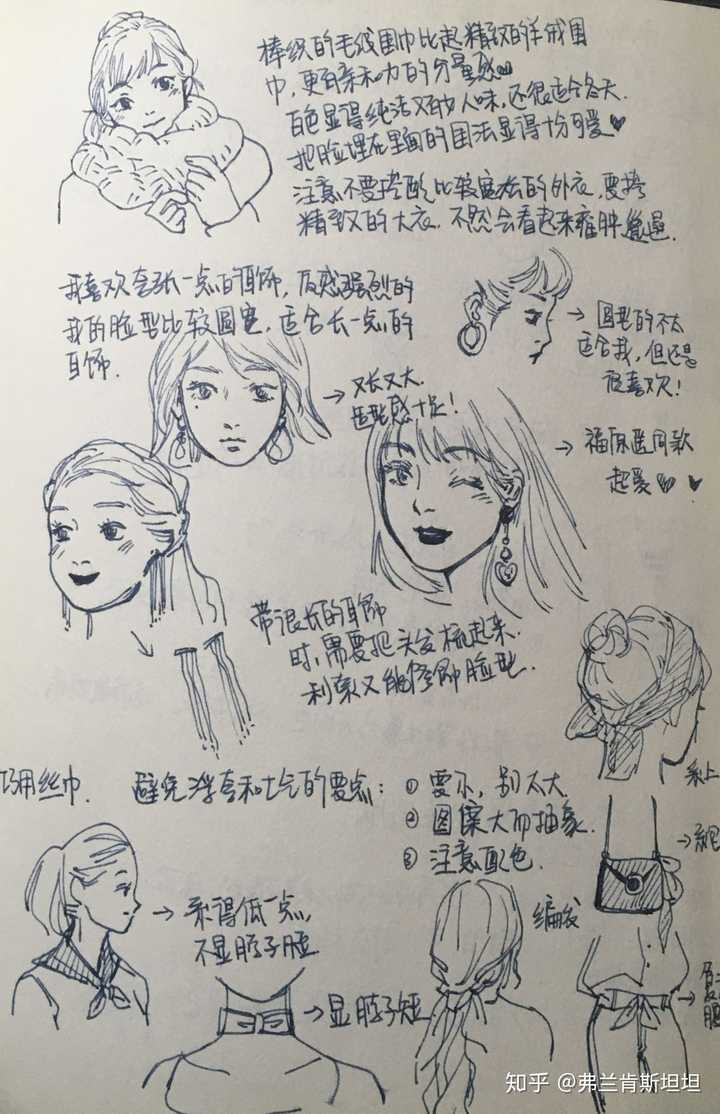 棒织的毛线围巾比起精致的羊绒围
巾，更有亲和力的分量感
白色显得纯洁又有女人味，还很适合冬天.
把脸埋在里面的围法显得十分可爱♥
注意不要搭配比较宽松的外衣，要搭
精致的大衣，不然会看起来臃肿邋遢.
我喜欢夸张一点的耳饰，反感强烈的
我的脸型比较圆宽，适合长一点的
耳饰.
→ 圆型的不太
适合我，但还是
很喜欢！
→ 又长又大.
造型感十足！
→ 福原遥同款
超爱 ♥
带很长的耳饰
时，需要把头发梳起来.
利索又能修饰脸型.
巧用丝巾. 避免浮夸和土气的要点：① 要小，别太大.
② 图案大而抽象.
③ 注意配色.
系上
→ 系包
→ 系得低一点，
不显脖子短
编发
→ 显脖子短
知乎 @弗兰肯斯坦坦